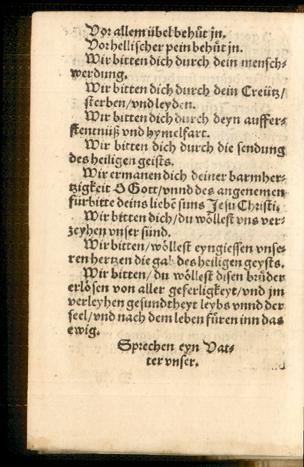 Vor allem übel behüt jn.
Vor hellischer pein behüt jn.
Wir bitten dich durch dein mensch-
werdung.
Wir bitten dich durch dein Creütz/
sterben/vnd leyden.
Wir bitten dich durch deyn auffer-
stentnüß vnd hymelfart.
Wir bitten dich durch die sendung
des heiligen geists.
Wir ermanen dich deiner barmher-
tzigkeit O Gott/vnnd des angenemen
fürbitte deins liebē suns Jesu Christi.
Wir bitten dich/du wöllest vns ver-
zeyhen vnser sünd.
Wir bitten/wöllest eyngiessen vnse-
ren hertzen die gab des heiligen geysts.
Wir bitten/ du wöllest disen brüder
erlösen von aller geferligkeyt/vnd jm
verleyhen gesundtheyt leybs vnnd der
seel/vnd nach dem leben füren inn das
ewig.
Sprechen eyn Vat-
ter vnser.